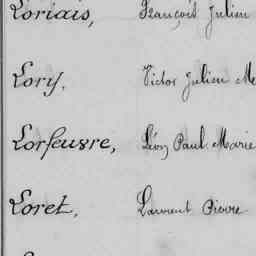 Loriais, François Julien
Lory, Victor Julien Me
Lorfeuvre, Léon Paul Marie
Loret, Laurent Pierre